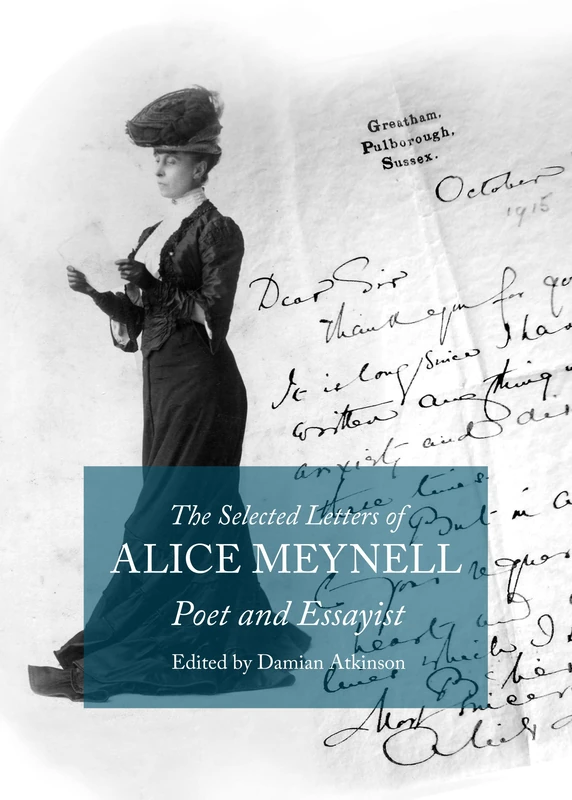 Greatham,
Pulborough,
Sussex.
October
1915
Dear Sir
Thank you for
It is long since I ha
written anything
anxiety and dis
these times.
But in a
to your reques
hearty and
lines which I
Most sincere
Alice
The Selected Letters of
ALICE MEYNELL
Poet and Essayist
Edited by Damian Atkinson